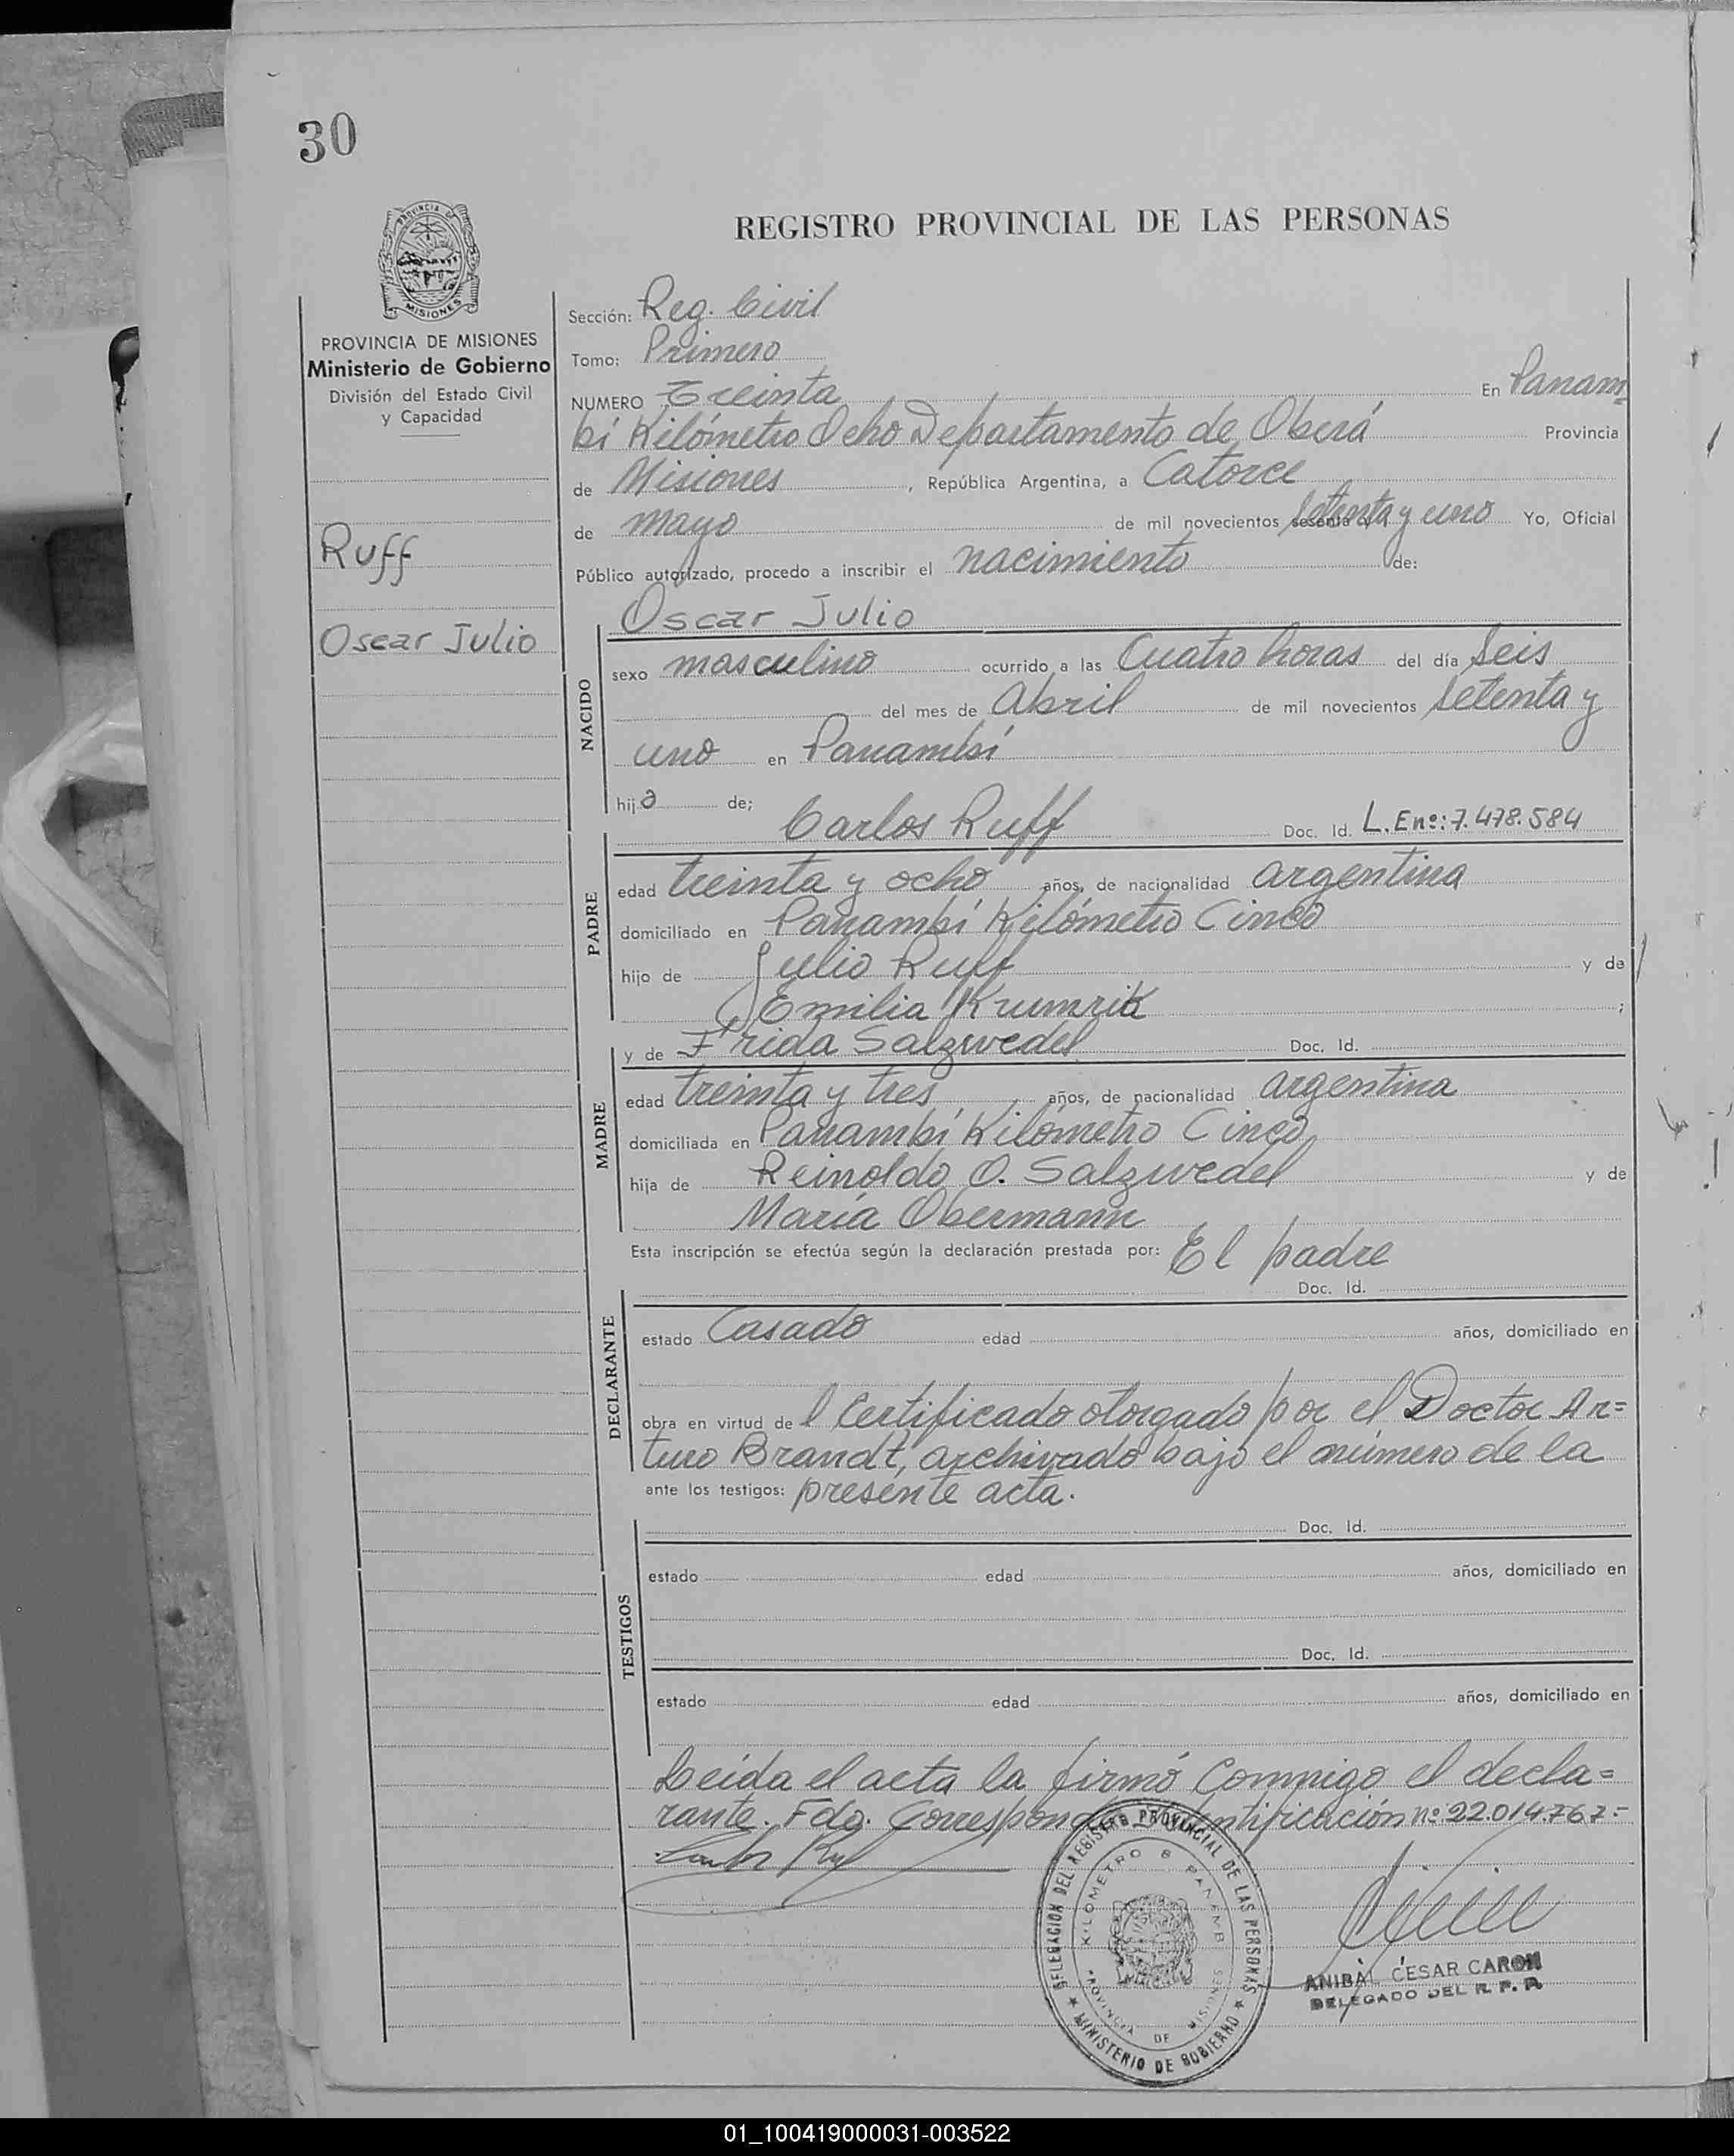 30
PROVINCIA DE
MISIONES
REGISTRO PROVINCIAL DE LAS PERSONAS
PROVINCIA DE MISIONES
Ministerio de Gobierno
División del Estado Civil
y Capacidad
Ruff
Oscar Julio
Sección: Reg. Civil
Tomo: Primero
NUMERO Treinta En Panam=
bí Kilómetro Ocho Departamento de Oberá Provincia
de Misiones, República Argentina, a Catorce
de mayo de mil novecientos sesenta y setenta y uno Yo, Oficial
Público autorizado, procedo a inscribir el nacimiento de:
Oscar Julio
NACIDO
sexo masculino ocurrido a las Cuatro horas del día Seis
del mes de Abril de mil novecientos setenta y
uno en Panambí
hijo de;
Carlos Ruff Doc. Id. L.E nº: 7.478.584
PADRE
edad treinta y ocho años, de nacionalidad argentina
domiciliado en Panambí Kilómetro Cinco
hijo de Julio Ruff y de
Emilia Krumrik ;
y de Frida Salzwedel Doc. Id.
MADRE
edad treinta y tres años, de nacionalidad argentina
domiciliada en Panambí Kilómetro Cinco
hija de Reinoldo O. Salzwedel y de
María Obermann
Esta inscripción se efectúa según la declaración prestada por: El padre
Doc. Id.
DECLARANTE
estado Casado edad años, domiciliado en
obra en virtud del Certificado otorgado por el Doctor Ar=
turo Brandt, archivado bajo el número de la
ante los testigos: presente acta.
Doc. Id.
TESTIGOS
estado edad años, domiciliado en
Doc. Id.
estado edad años, domiciliado en
Leída el acta la firmó Conmigo el decla=
rante. Fdo. Corresponde Identificación nº 22.014.767=
DELEGACION DEL REGISTRO PROVINCIAL DE LAS PERSONAS
KILOMETRO 8 PANAMBI
PROVINCIA DE MISIONES
★ MINISTERIO DE GOBIERNO ★
ANIBAL CESAR CARON
DELEGADO DEL R. P. P.
01_100419000031-003522